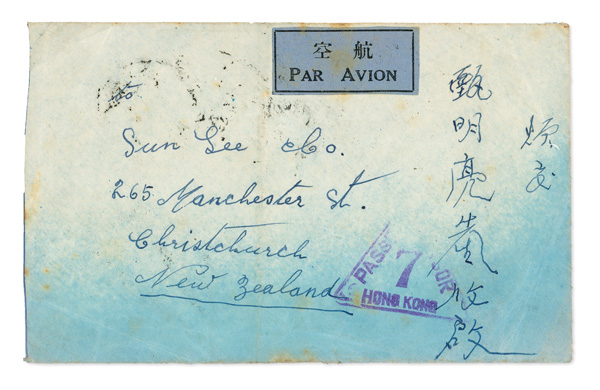 航空
PAR AVION
To
Sun Lee & Co.
265 Manchester St.
Christchurch
New Zealand
煩交
甄明亮 收啟
PASS
7
HONG KONG